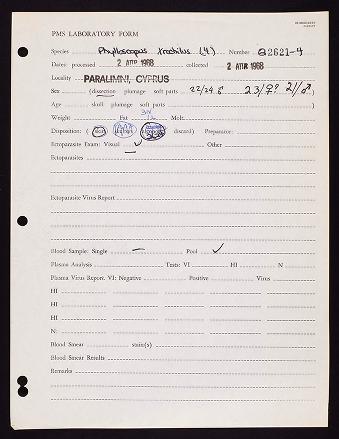 PMS LABORATORY FORM
Species Phylloscopus trochilus (4) Number 2621-4
Dates: processed 2 ΑΠΡ 1968 collected 2 ΑΠΡ 1968
Locality PARALIMNI, CYPRUS
Sex (dissection plumage soft parts 22/24 ♂ 23/♀? 21/♂)
Age skull plumage soft parts )
Weight Fat Molt
Disposition: ( skin alcohol discard) Preparator:
Ectoparasite Exam: Visual ✓ Other
Ectoparasites
Ectoparasite Virus Report
Blood Sample: Single — Pool ✓
Plasma Analysis Tests: VI HI N
Plasma Virus Report. VI: Negative Positive Virus
HI
HI
HI
N:
Blood Smear stain(s)
Blood Smear Results
Remarks